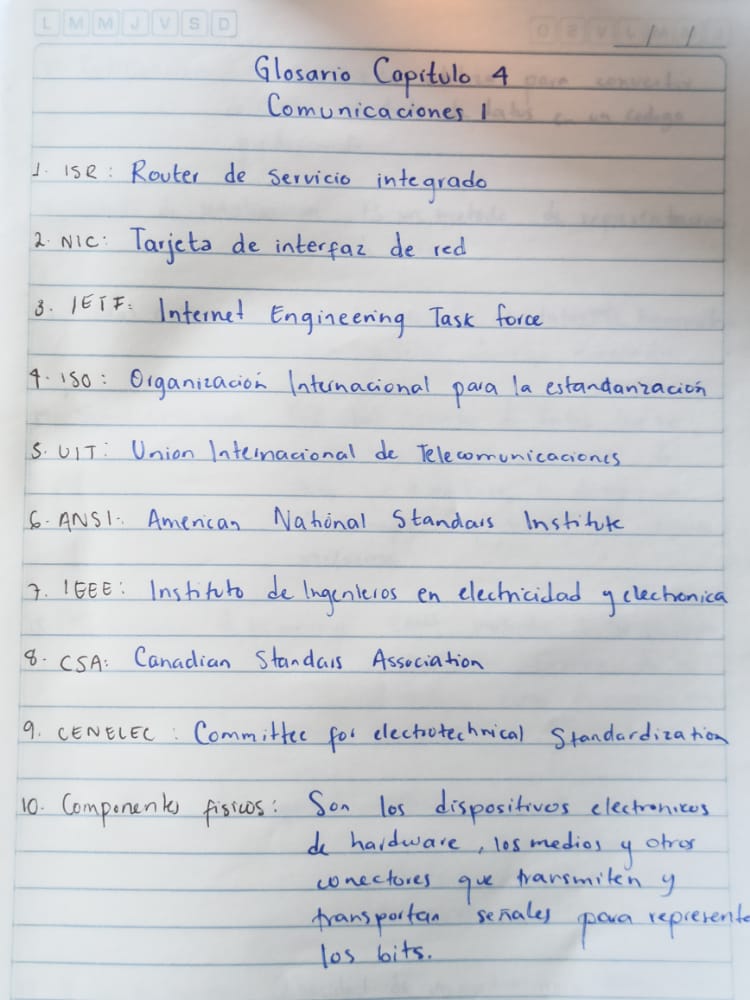 L M M J V S D
Glosario Capítulo 4
Comunicaciones 1
1. ISR: Router de servicio integrado
2. NIC: Tarjeta de interfaz de red
3. IETF: Internet Engineering Task force
4. ISO: Organización Internacional para la estandarización
5. UIT: Union Internacional de Telecomunicaciones
6. ANSI: American National Standars Institute
7. IEEE: Instituto de Ingenieros en electricidad y electronica
8. CSA: Canadian Standars Association
9. CENELEC: Committee for electrotechnical Standardization
10. Componentes físicos: Son los dispositivos electronicos
de hardware, los medios y otros
conectores que transmiten y
transportan señales para represent
los bits.